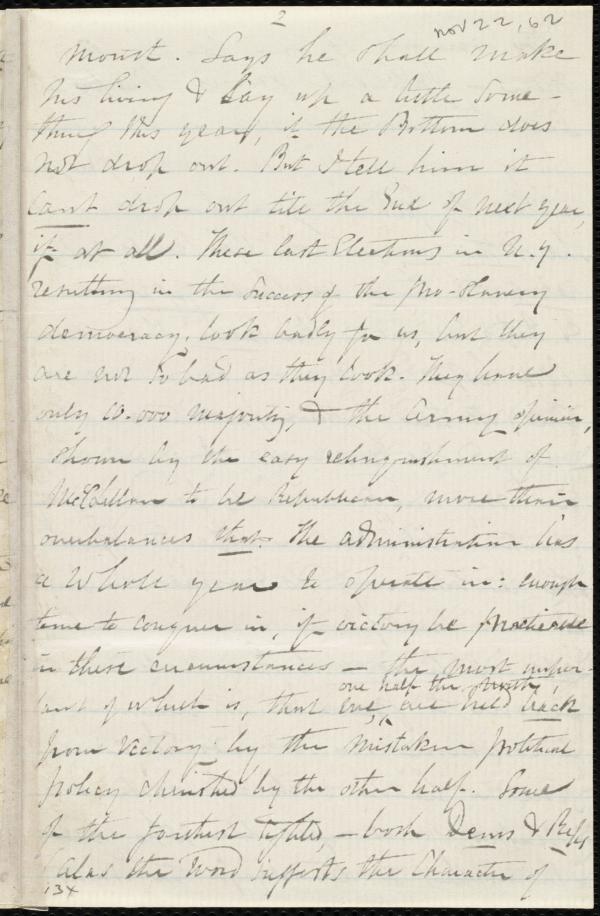 2
Nov 22, 62
mount. Says he shall make
his living & lay up a little some-
thing this year, if the Bottom does
not drop out. But I tell him it
cant drop out till the End of next year,
if at all. These last Elections in N.Y.
resulting in the success of the pro-slavery
democracy, look badly for us, but they
are not so bad as they look. They have
only 10.000 majority, & the Army opinion,
shown by the easy relinquishment of
McClellan to be Republican, more than
overbalances that. The administration has
a whole year to operate in: enough
time to conquer in, if victory be practicable
in these circumstances — the most impor-
tant of which is, that we, one half the North, are held back
from victory by the mistaken political
policy cherished by the other half. Some
of the farthest sighted, — both Dems & Reps
(Alas the word suggests the Character of
13x